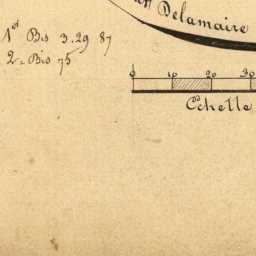 Delamaire
1er Bis 3.29 87
2e Bis 75
0 10 20 30
Echelle